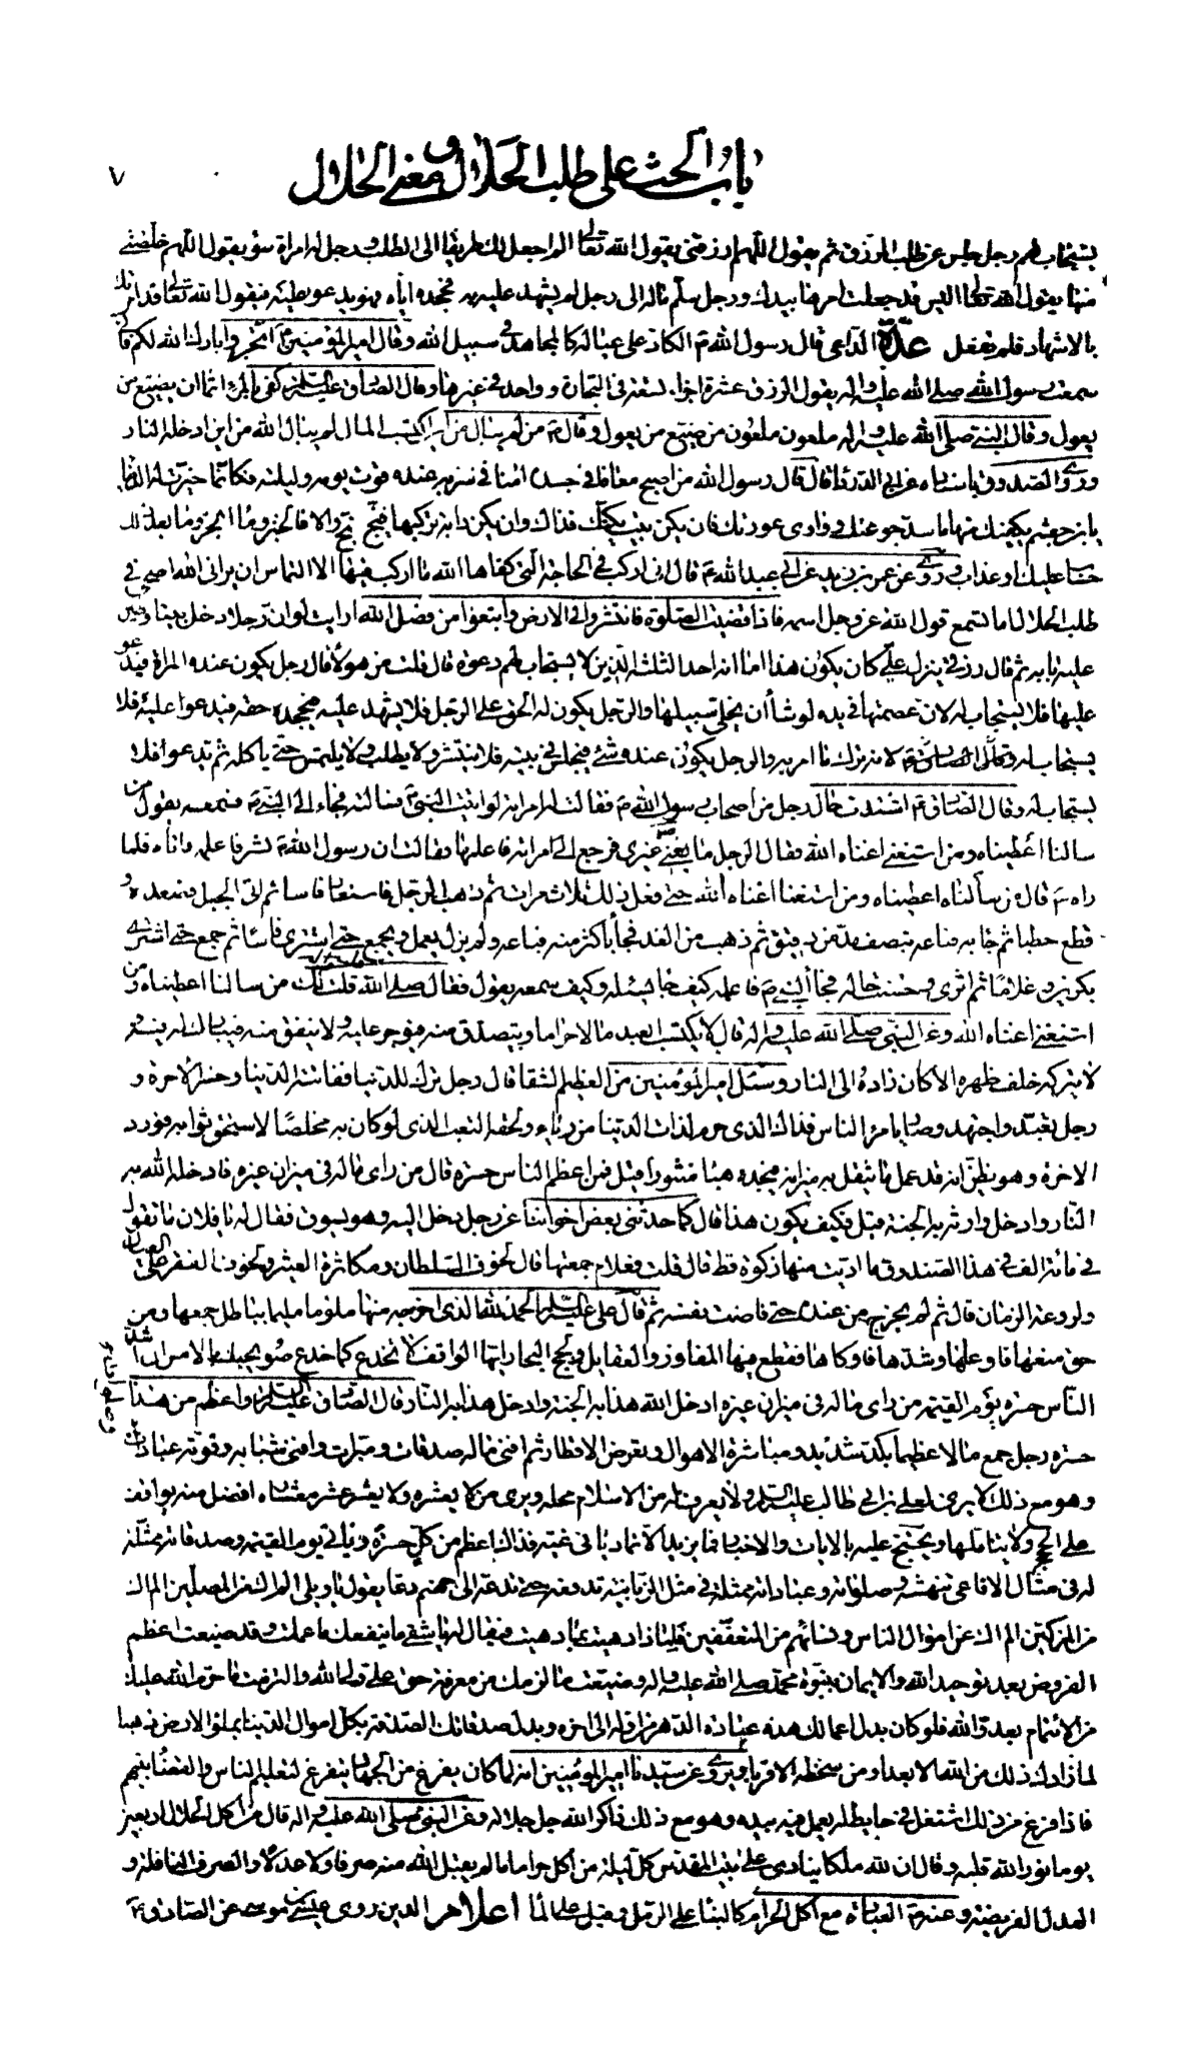 باب الحث على طلب الحلال و معنى الحلال
٧
يستجاب لهم رجل جلس عن طلب الرزق ثم يقول اللهم ارزقني يقول الله تعالى الم اجعل لك طريقا الى الطلب و رجل له امراة سوء يقول اللهم خلصني
منها يقول الله تعالى اليس قد جعلت امرها بيدك و رجل سلم ماله الى رجل لم يشهد عليه به فجحده اياه فهو يدعو عليه فيقول الله تعالى قد امرتك
بالاشهاد فلم تفعل عدة الداعي قال رسول الله ص الكاد على عياله كالمجاهد في سبيل الله و قال امير المؤمنين ع اتجروا بارك الله لكم فاني
سمعت رسول الله صلى الله عليه و اله يقول الرزق عشرة اجزاء تسعة في التجارة و واحد في غيرها و قال الصادق عليه السلم كفى بالمرء اثما ان يضيع من
يعول و قال النبي صلى الله عليه و اله ملعون ملعون من ضيع من يعول و قال ص من لم يبال من اين اكتسب المال لم يبال الله من اين ادخله النار
و روى الصدوق باسناده عن ابي الدرداء قال قال رسول الله من اصبح معافا في جسده امنا في سربه عنده قوت يومه و ليلته فكانما خيرت له الدنيا
يا بن جعشم يكفيك منها ما سد جوعتك و وارى عورتك فان يكن بيت يكنك فذاك و ان يكن دابة تركبها فبخ بخ و الا فالخبز و ماء الجر و ما بعد ذلك
حساب عليك او عذاب و روى عن عمر بن يزيد عن ابي عبد الله ع قال اني اركب في الحاجة التي كفاها الله ما اركب فيها الا التماس ان يراني الله اضحى في
طلب الحلال اما تسمع قول الله عز و جل اسمه فاذا قضيت الصلوة فانتشروا في الارض و ابتغوا من فضل الله ارايت لو ان رجلا دخل بيتا و طين
عليه بابه ثم قال رزقي ينزل علي كان يكون هذا اما انه احد الثلثة الذين لا يستجاب لهم دعوة قال قلت من هؤلاء قال رجل يكون عنده المراة فيدعو
عليها فلا يستجاب له لان عصمتها في يده لو شاء ان يخلي سبيلها و الرجل يكون له الحق على الرجل فلا يشهد عليه فيجحده حقه فيدعوا عليه فلا
يستجاب له لانه ترك ما امر به و الرجل يكون عنده شئ فيجلس في بيته فلا ينتشر و لا يطلب و لا يلتمس حتى ياكله ثم يدعوا فلا
يستجاب له و قال الصادق ع اشتدت حال رجل من اصحاب رسول الله ص فقالت له امراته لو اتيت النبي ص فسالته فجاء الى النبي ص فسمعه يقول من
سالنا اعطيناه و من استغنى اغناه الله فقال الرجل ما يعني غيري فرجع الى امراته فاعلمها فقالت ان رسول الله ص بشر فاعلمه فاتاه فلما
راه ص قال من سالناه اعطيناه و من استغنا اغناه الله حتى فعل ذلك ثلاث مرات ثم ذهب الرجل فاستعار فاسا ثم اتى الجبل فصعده و
قطع حطبا ثم جاء به فباعه بنصف مد من دقيق ثم ذهب من الغد فجاء باكثر منه فباعه و لم يزل يعمل و يجمع حتى اشترى فاسا ثم جمع حتى اشترى
بكرين و غلاما ثم اثرى و حسنت حاله فجاء النبي ص فاعلمه كيف جاء يسئله و كيف سمعه يقول فقال صلى الله قلت لك من سالنا اعطيناه و من
استغنى اغناه الله و عن النبي صلى الله عليه و اله قال لا يكتسب العبد مالا حراما و يتصدق منه فيوجر عليه و لا ينفق منه فيبارك له فيه و
لا يتركه خلف ظهره الا كان زاده الى النار و سئل امير المؤمنين من العظيم الشقا قال رجل ترك الدنيا للدنيا ففاتته الدنيا و خسر الاخرة و
رجل تعبد و اجتهد و صام رئاء الناس فذاك الذي حرم لذات الدنيا من رياء و لحقه التعب الذي لو كان به مخلصا لاستحق ثوابه فورد
الاخرة و هو يظن انه قد عمل ما يثقل به ميزانه فيجده هباء منثورا قيل فمن اعظم الناس حسرة قال من راى ماله في ميزان غيره فادخله الله به
النار و ادخل وارثه به الجنة قيل فكيف يكون هذا قال كما حدثني بعض اخواننا عن رجل دخل اليه و هو يسوق فقال له يا فلان ما تقول
في مائة الف في هذا الصندوق ما اديت منها زكوة قط قال قلت فعلام جمعتها قال لخوف السلطان و مكاثرة العشيرة و لخوف الفقر على العيال
و لروعة الزمان قال ثم لم يخرج من عنده حتى فاضت نفسه ثم قال علي عليه السلم الحمد لله الذي اخرجه منها ملوما مليما بباطل جمعها و من
حق منعها فاوعاها و شدها فاوكاها فقطع فيها المفاوز و القفار و لجج البحار ايها الواقف لا تخدع كما خدع صويحبك بالامس ان اشد
الناس حسرة يوم القيمة من راى ماله في ميزان غيره ادخل الله هذا به الجنة و ادخل هذا به النار قال الصادق عليه السلم و اعظم من هذا
حسرة رجل جمع مالا عظيما بكد شديد و مباشرة الاهوال و تعرض الاخطار ثم افنى ماله صدقات و مبرات و افنى شبابه و قوته عبادات
و هو مع ذلك لا يرى لعلي بن ابي طالب عليه السلم و لا يعرف له من الاسلام محله و يرى من لا يعشره و لا يعشر عشر معشاره افضل منه يواقف
على الحجج و لا يتاملها و يحتج عليه بالايات و الاخبار فما يزيد الا تماديا في غيه فذاك اعظم من كل حسرة و ياتي يوم القيمة و صدقاته ممثلة
له في مثال الافاعي تنهشه و صلواته و عباداته ممثلة في مثل الزبانية تدفعه حتى تدعه الى جهنم دعا يقول يا ويلي الم اك من المصلين الم اك
من المزكين الم اك عن اموال الناس و نسائهم من المتعففين فلماذا دهيت بما دهيت فيقال له يا شقي ما ينفعك ما عملت و قد ضيعت اعظم
الفروض بعد توحيد الله و الايمان بنبوة محمد صلى الله عليه و اله و ضيعت ما لزمك من معرفة حق علي ولي الله و التزمت ما حرم الله عليك
من الائتمام بعدو الله فلو كان بدل اعمالك هذه عبادة الدهر من اوله الى اخره و بدل صدقاتك الصدقة بكل اموال الدنيا بملؤ الارض ذهبا
لما زادك ذلك من الله الا بعدا و من سخطه الا قربا و روى عن سيدنا امير المؤمنين انه لما كان يفرغ من الجهاد يتفرغ لتعليم الناس و القضاء بينهم
فاذا فرغ من ذلك اشتغل في حايط له يعمل فيه بيده و هو مع ذلك ذاكر الله جل جلاله و عن النبي صلى الله عليه و اله قال من اكل الحلال اربعين
يوما نور الله قلبه و قال ان لله ملكا ينادي على بيت المقدس كل ليلة من اكل حراما لم يقبل الله منه صرفا و لا عدلا و الصرف النافلة و
العدل الفريضة و عنه ص العبادة مع اكل الحرام كالبناء على الرمل و قيل على الماء اعلام الدين روى عيسى بن موسى عن الصادق ع